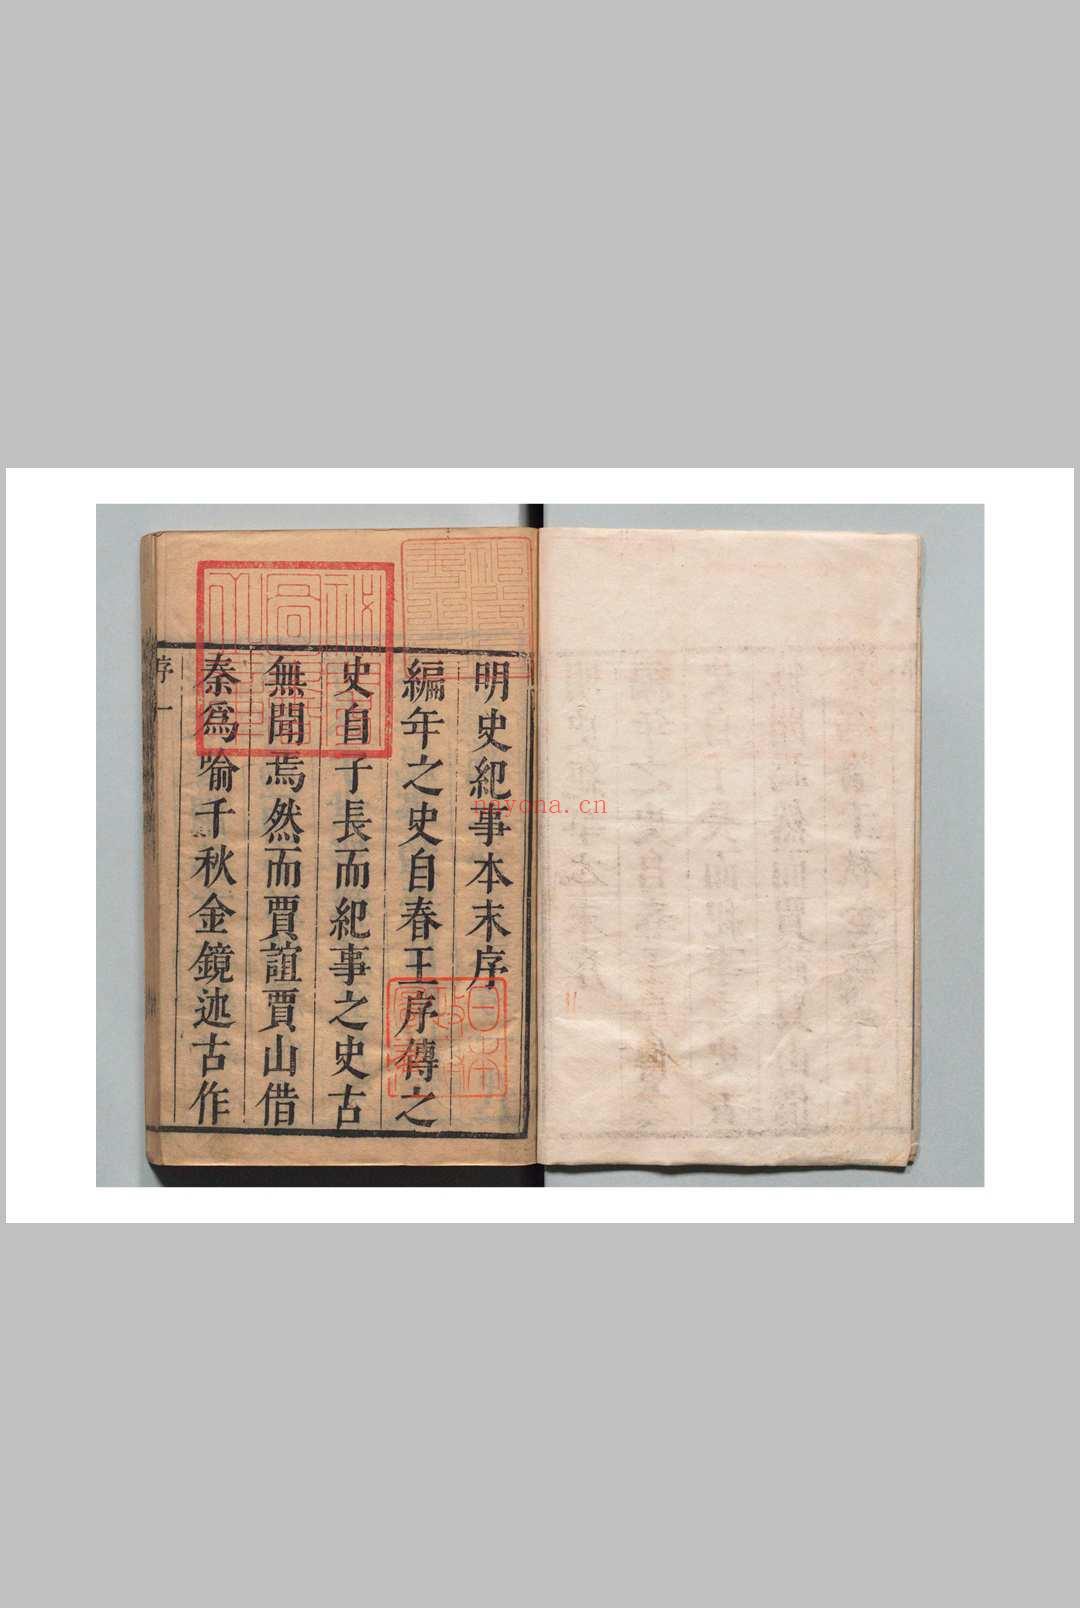 明史紀事本末序
編年之史自春王序傳之
史自子長而紀事之史古
無聞焉然而賈誼賈山借
秦爲喻千秋金鏡述古作
序 一
nayona.cn